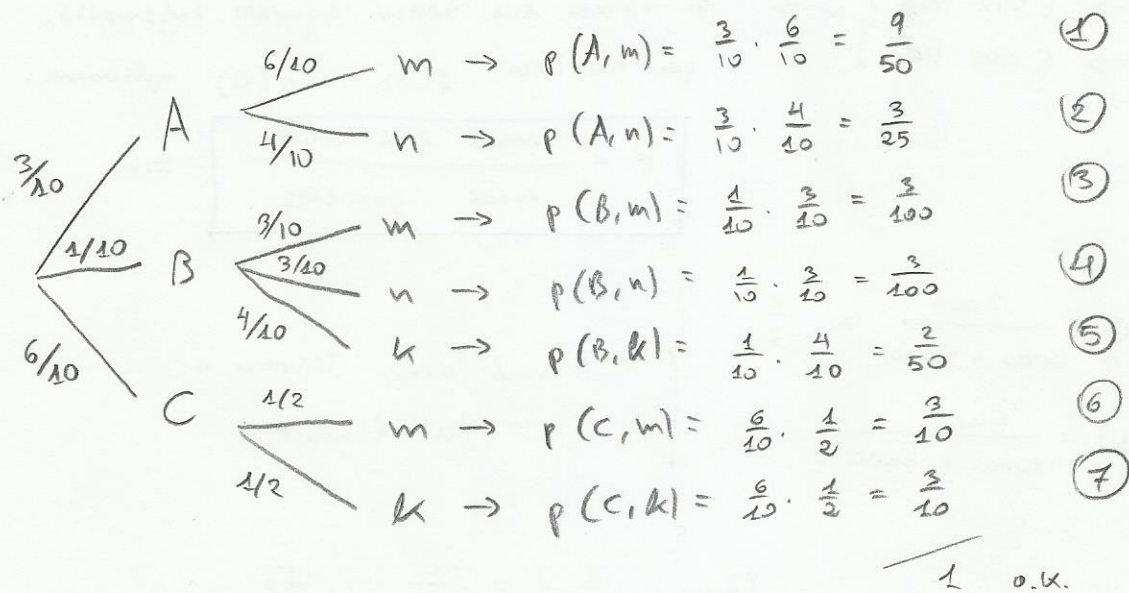 6/10 m → p(A,m) = 3/10 · 6/10 = 9/50 ①
A
4/10 n → p(A,n) = 3/10 · 4/10 = 3/25 ②
3/10
3/10 m → p(B,m) = 1/10 · 3/10 = 3/100 ③
1/10 B
3/10 n → p(B,n) = 1/10 · 3/10 = 3/100 ④
4/10 k → p(B,k) = 1/10 · 4/10 = 2/50 ⑤
6/10
C 1/2 m → p(C,m) = 6/10 · 1/2 = 3/10 ⑥
1/2 k → p(C,k) = 6/10 · 1/2 = 3/10 ⑦
1 o.k.